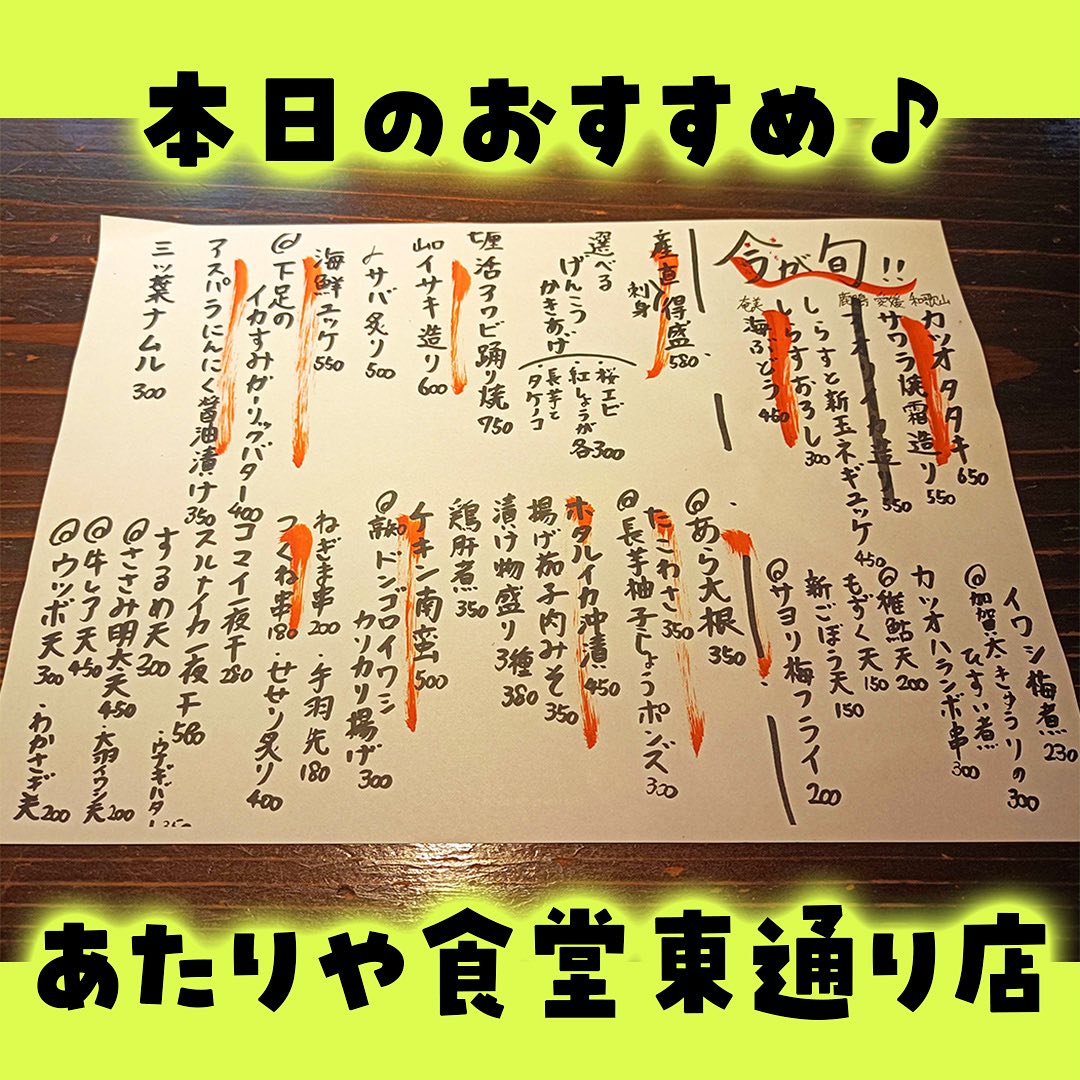 本日のおすすめ♪
今が旬!!
和歌山
カツオタタキ 650
愛媛
サワラ焼霜造り 550
鹿児島
アオリイカ造り 550
しらすと新玉ネギユッケ 450
しらすおろし 300
奄美
海ぶどう 450
産直刺身得盛 580
選べる
げんこつ
かきあげ
・桜エビ
・紅しょうが
・長芋と
・タケノコ
各300
活アワビ踊り焼 950
イサキ造り 600
〆サバ炙り 500
海鮮ユッケ 550
@下足の
イカすみガーリックバター 400
アスパラにんにく醤油漬け 350
三ッ葉ナムル 300
イワシ梅煮 230
@加賀太きゅうりの
ひすい煮 300
カツオハランボ串 300
@稚鮎天 200
もずく天 150
新ごぼう天 150
@サヨリ梅フライ 200
@あら大根 350
たこわさ 350
@長芋柚子こしょうポンズ 300
ホタルイカ沖漬 450
揚げ茄子肉みそ 350
漬け物盛り3種 380
鶏肝煮 350
チキン南蛮 500
@高知ドンゴロイワシ
カリカリ揚げ 300
ねぎま串 200
・手羽先 180
つくね串 180
・せせり炙り 400
コマイ一夜干 280
スルメイカ一夜干 580
するめ天 300
・ウナギバター 350
@ささみ明太天 450
・大羽イワシ天 200
@牛レア天 450
@ウツボ天 300
・わかさぎ天 200
あたりや食堂東通り店